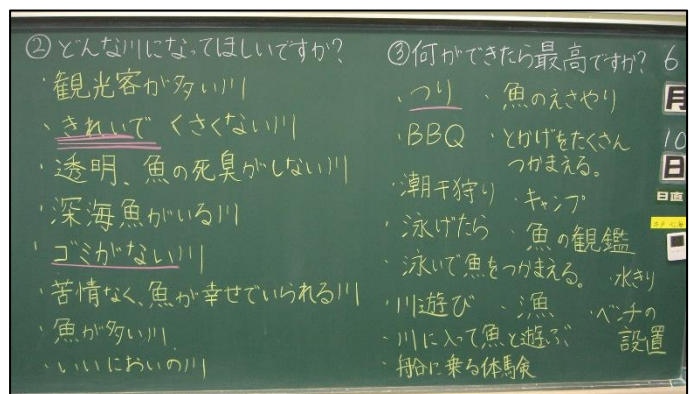 ②どんな川になってほしいですか?
・観光客が多い川
・きれいで くさくない川
・透明、魚の死臭がしない川
・深海魚がいる川
・ゴミがない川
・苦情なく、魚が幸せでいられる川
・魚が多い川
・いいにおいの川
③何ができたら最高ですか?
・つり ・魚のえさやり
・BBQ ・とかげをたくさん
つかまえる。
・潮干狩り ・キャンプ
・泳げたら ・魚の観鑑
・泳いで魚をつかまえる。 ・水きり
・川遊び ・漁 ・ベンチの
設置
・川に入って魚と遊ぶ
・舟谷に乗る体験
6
月
10
日
日直